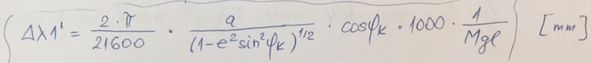 ( Δλ1' = 2·π / 21600 · a / (1-e² sin²φₖ)^1/2 · cosφₖ · 1000 · 1 / Mgl ) [mm]